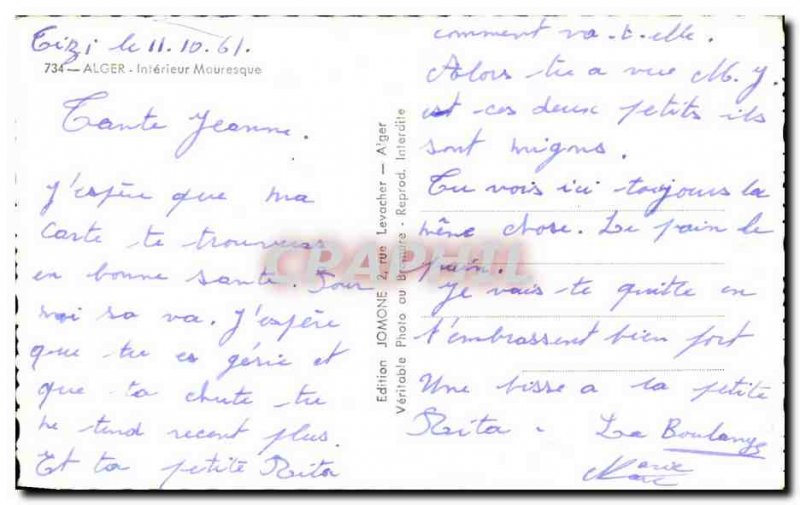 Tizi le 11.10.61.
734 — ALGER - Intérieur Mauresque
Tante Jeanne.
J'espère que ma
carte te trouveras
en bonne santé. Pour
moi sa va. J'espère
que tu es gérie et
que ta chute tu
ne tend recent plus.
Et ta petite Rita
Edition JOMONE 2, rue Levacher — Alger
Véritable Photo au Bromure - Reprod. Interdite
comment va-t-elle.
Alors tu a vue M. J.
est ces deux petits ils
sont migons.
Tu vois ici toujours la
même chose. Le pain le
pain.
Je vais te quitte en
t'embrassent bien fort
Une bisse a la petite
Rita. La Boulange
CPAPHIL